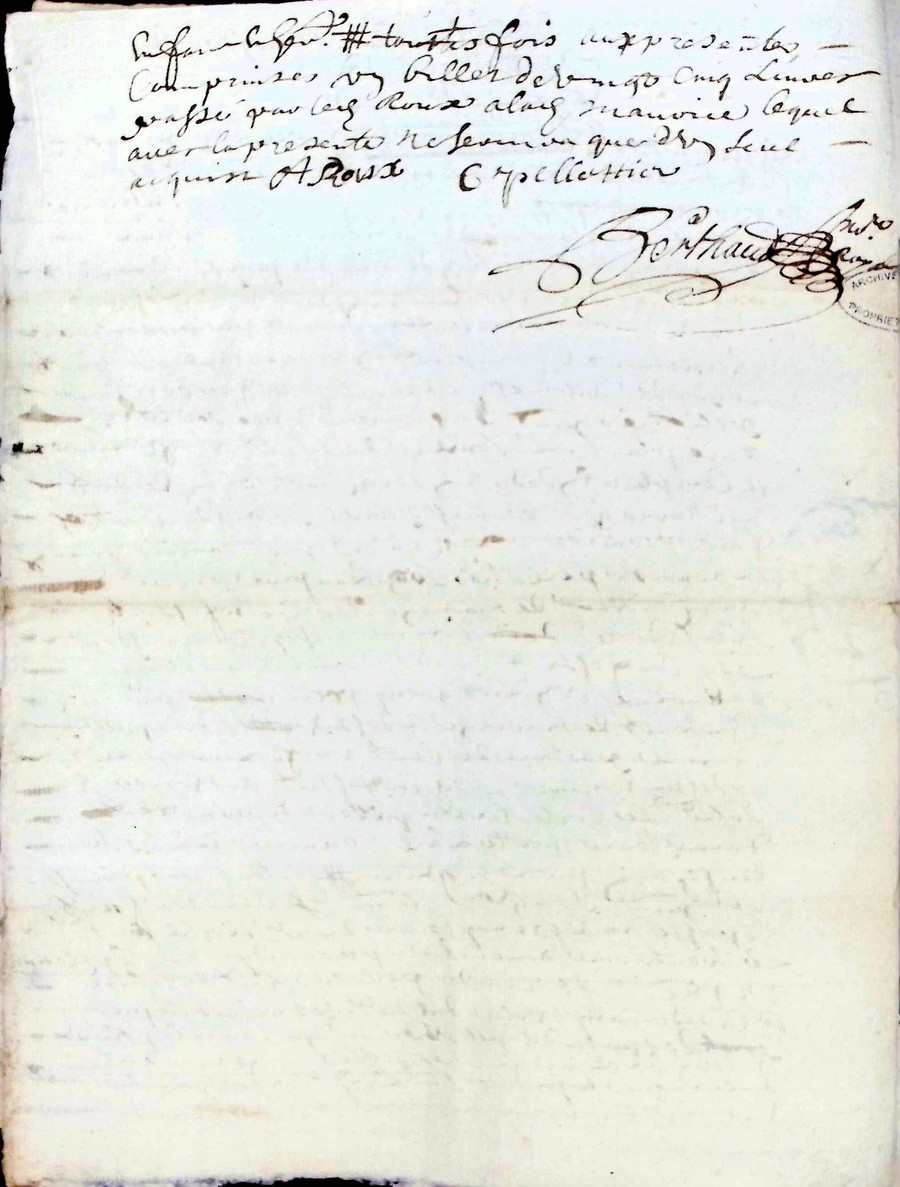 toutesfois aux presentes
Comprinses un billet de vingt Cinq Livres
passé par led Roux aud maurice lequel
avec la presente ne servira que d'un seul
acquist A Roux C pellottier
Berthaud
ARCHIVE
PROPRIET